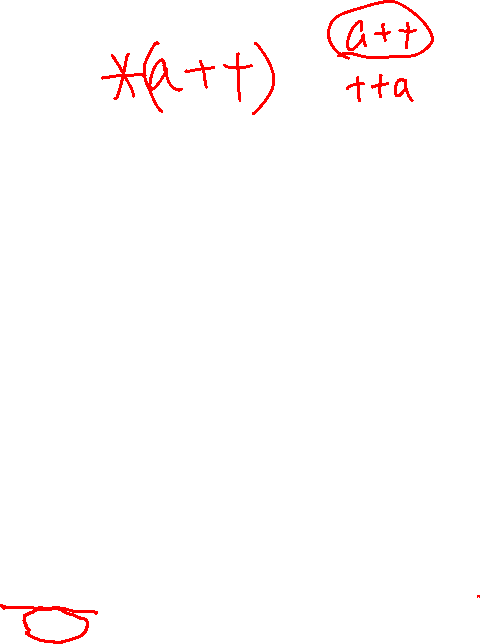 *(a++)
a++
++a